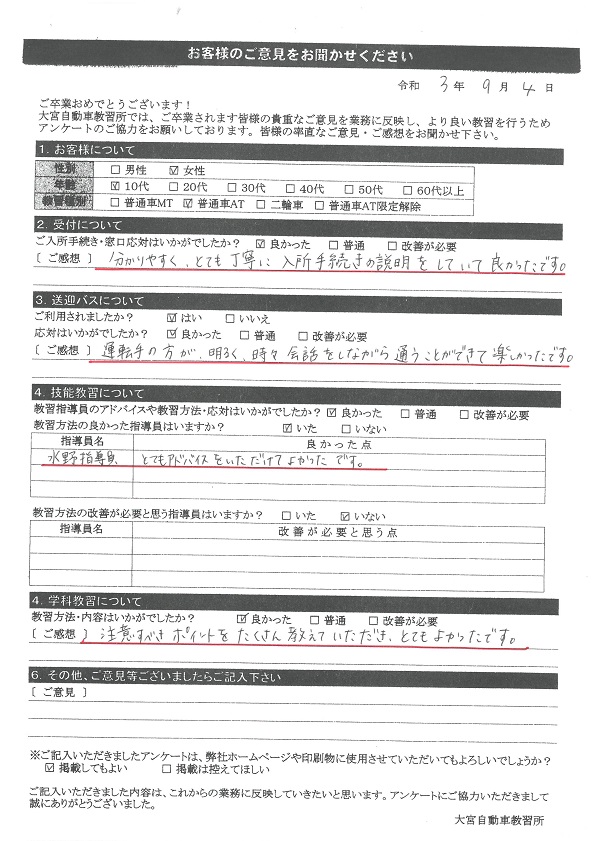 お客様のご意見をお聞かせください
令和 3 年 9 月 4 日
ご卒業おめでとうございます！
大宮自動車教習所では、ご卒業されます皆様の貴重なご意見を業務に反映し、より良い教習を行うため
アンケートのご協力をお願いしております。皆様の率直なご意見・ご感想をお聞かせ下さい。
1. お客様について
性別 □ 男性 ☑ 女性
年齢 ☑ 10代 □ 20代 □ 30代 □ 40代 □ 50代 □ 60代以上
教習種別 □ 普通車MT ☑ 普通車AT □ 二輪車 □ 普通車AT限定解除
2. 受付について
ご入所手続き・窓口応対はいかがでしたか？ ☑ 良かった □ 普通 □ 改善が必要
〔 ご感想 〕 分かりやすく、とても丁寧に入所手続きの説明をしていて良かったです。
3. 送迎バスについて
ご利用されましたか？ ☑ はい □ いいえ
応対はいかがでしたか？ ☑ 良かった □ 普通 □ 改善が必要
〔 ご感想 〕 運転手の方が、明るく、時々会話をしながら通うことができて楽しかったです。
4. 技能教習について
教習指導員のアドバイスや教習方法・応対はいかがでしたか？ ☑ 良かった □ 普通 □ 改善が必要
教習方法の良かった指導員はいますか？ ☑ いた □ いない
指導員名 良かった点
水野指導員 とてもアドバイスをいただけてよかったです。
教習方法の改善が必要と思う指導員はいますか？ □ いた ☑ いない
指導員名 改善が必要と思う点
4. 学科教習について
教習方法・内容はいかがでしたか？ ☑ 良かった □ 普通 □ 改善が必要
〔 ご感想 〕 注意すべきポイントをたくさん教えていただき、とてもよかったです。
6. その他、ご意見等ございましたらご記入下さい
〔 ご意見 〕
※ご記入いただきましたアンケートは、弊社ホームページや印刷物に使用させていただいてもよろしいでしょうか？
☑ 掲載してもよい □ 掲載は控えてほしい
ご記入いただきました内容は、これからの業務に反映していきたいと思います。アンケートにご協力いただきまして
誠にありがとうございました。
大宮自動車教習所